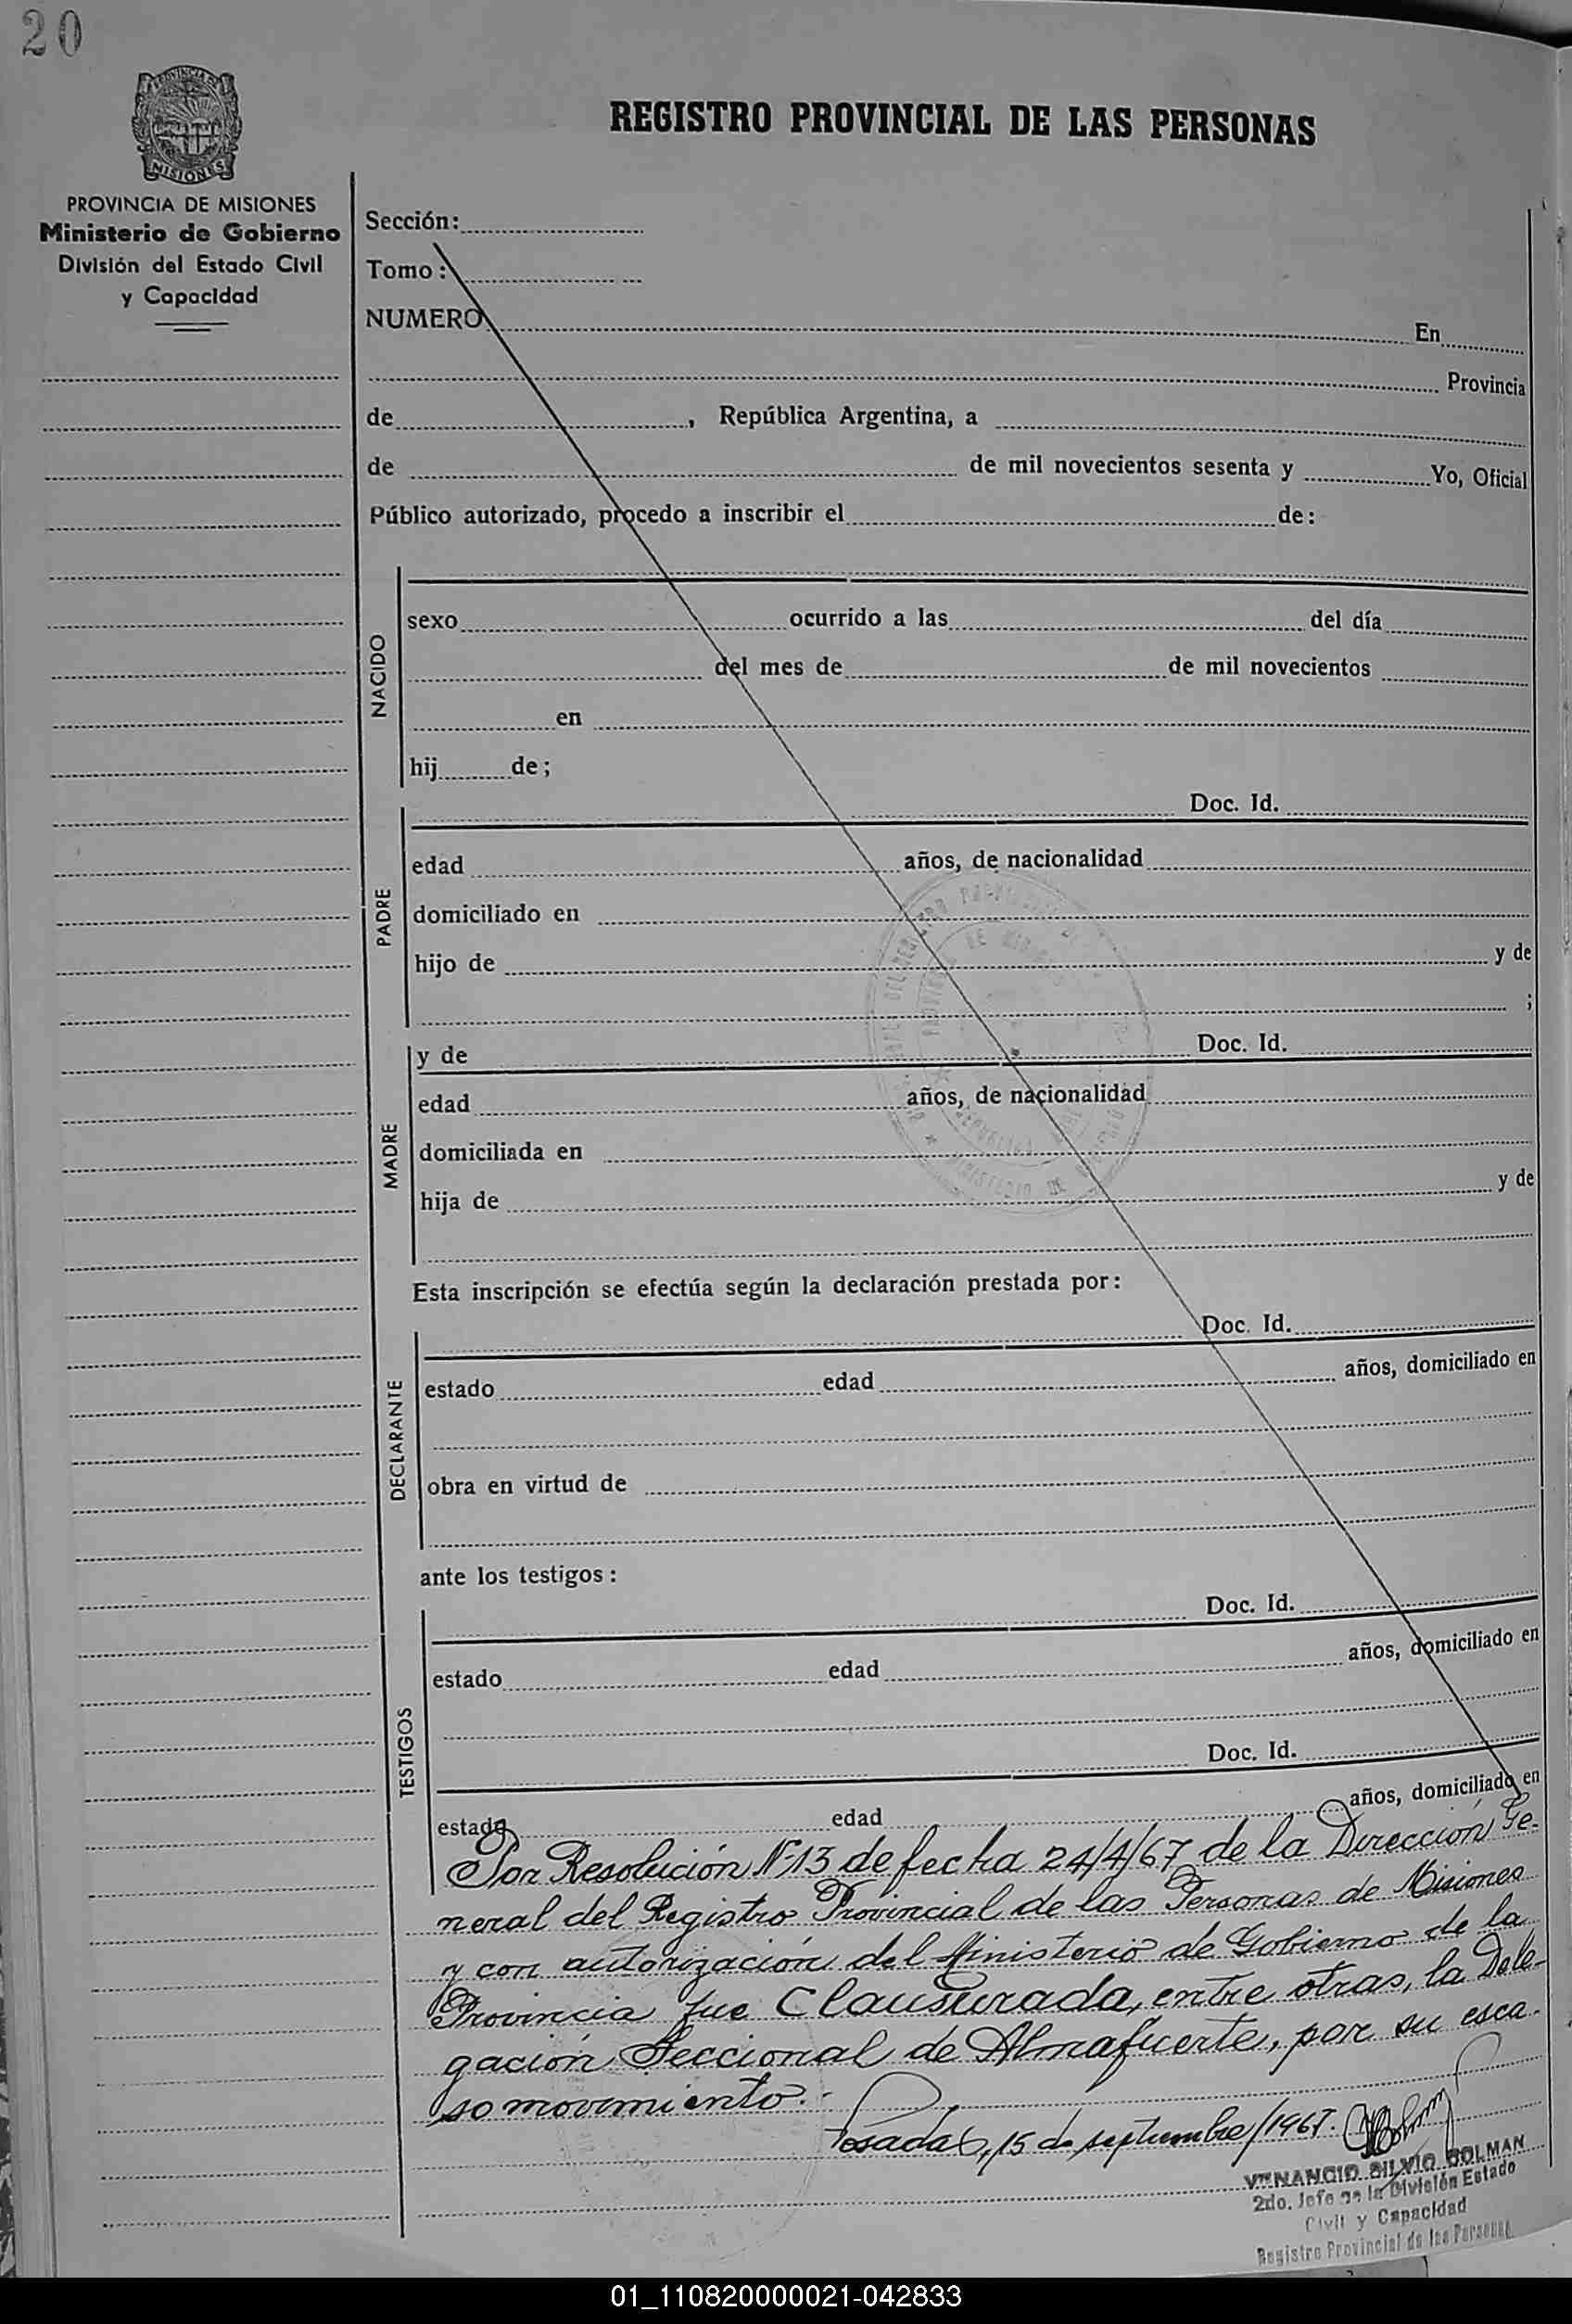 20
PROVINCIA DE
MISIONES
REGISTRO PROVINCIAL DE LAS PERSONAS
PROVINCIA DE MISIONES
Ministerio de Gobierno
División del Estado Civil
y Capacidad
Sección:
Tomo:
NUMERO En
Provincia
de , República Argentina, a
de de mil novecientos sesenta y Yo, Oficial
Público autorizado, procedo a inscribir el de:
NACIDO
sexo ocurrido a las del día
del mes de de mil novecientos
en
hij de;
PADRE
Doc. Id.
edad años, de nacionalidad
domiciliado en
hijo de y de
;
MADRE
y de Doc. Id.
edad años, de nacionalidad
domiciliada en
hija de y de
Esta inscripción se efectúa según la declaración prestada por:
DECLARANTE
Doc. Id.
estado edad años, domiciliado en
obra en virtud de
ante los testigos:
TESTIGOS
Doc. Id.
estado edad años, domiciliado en
Doc. Id.
estado edad años, domiciliado en
Por Resolución Nº 13 de fecha 24/4/67 de la Dirección Ge-
neral del Registro Provincial de las Personas de Misiones
y con autorización del Ministerio de Gobierno de la
Provincia fue Clausurada, entre otras, la Dele-
gación Seccional de Almafuerte, por su esca-
so movimiento.-
Posadas, 15 de septiembre/1967.
VENANCIO SILVIO BOLMAN
2do. Jefe de la División Estado
Civil y Capacidad
Registro Provincial de las Personas
01_110820000021-042833